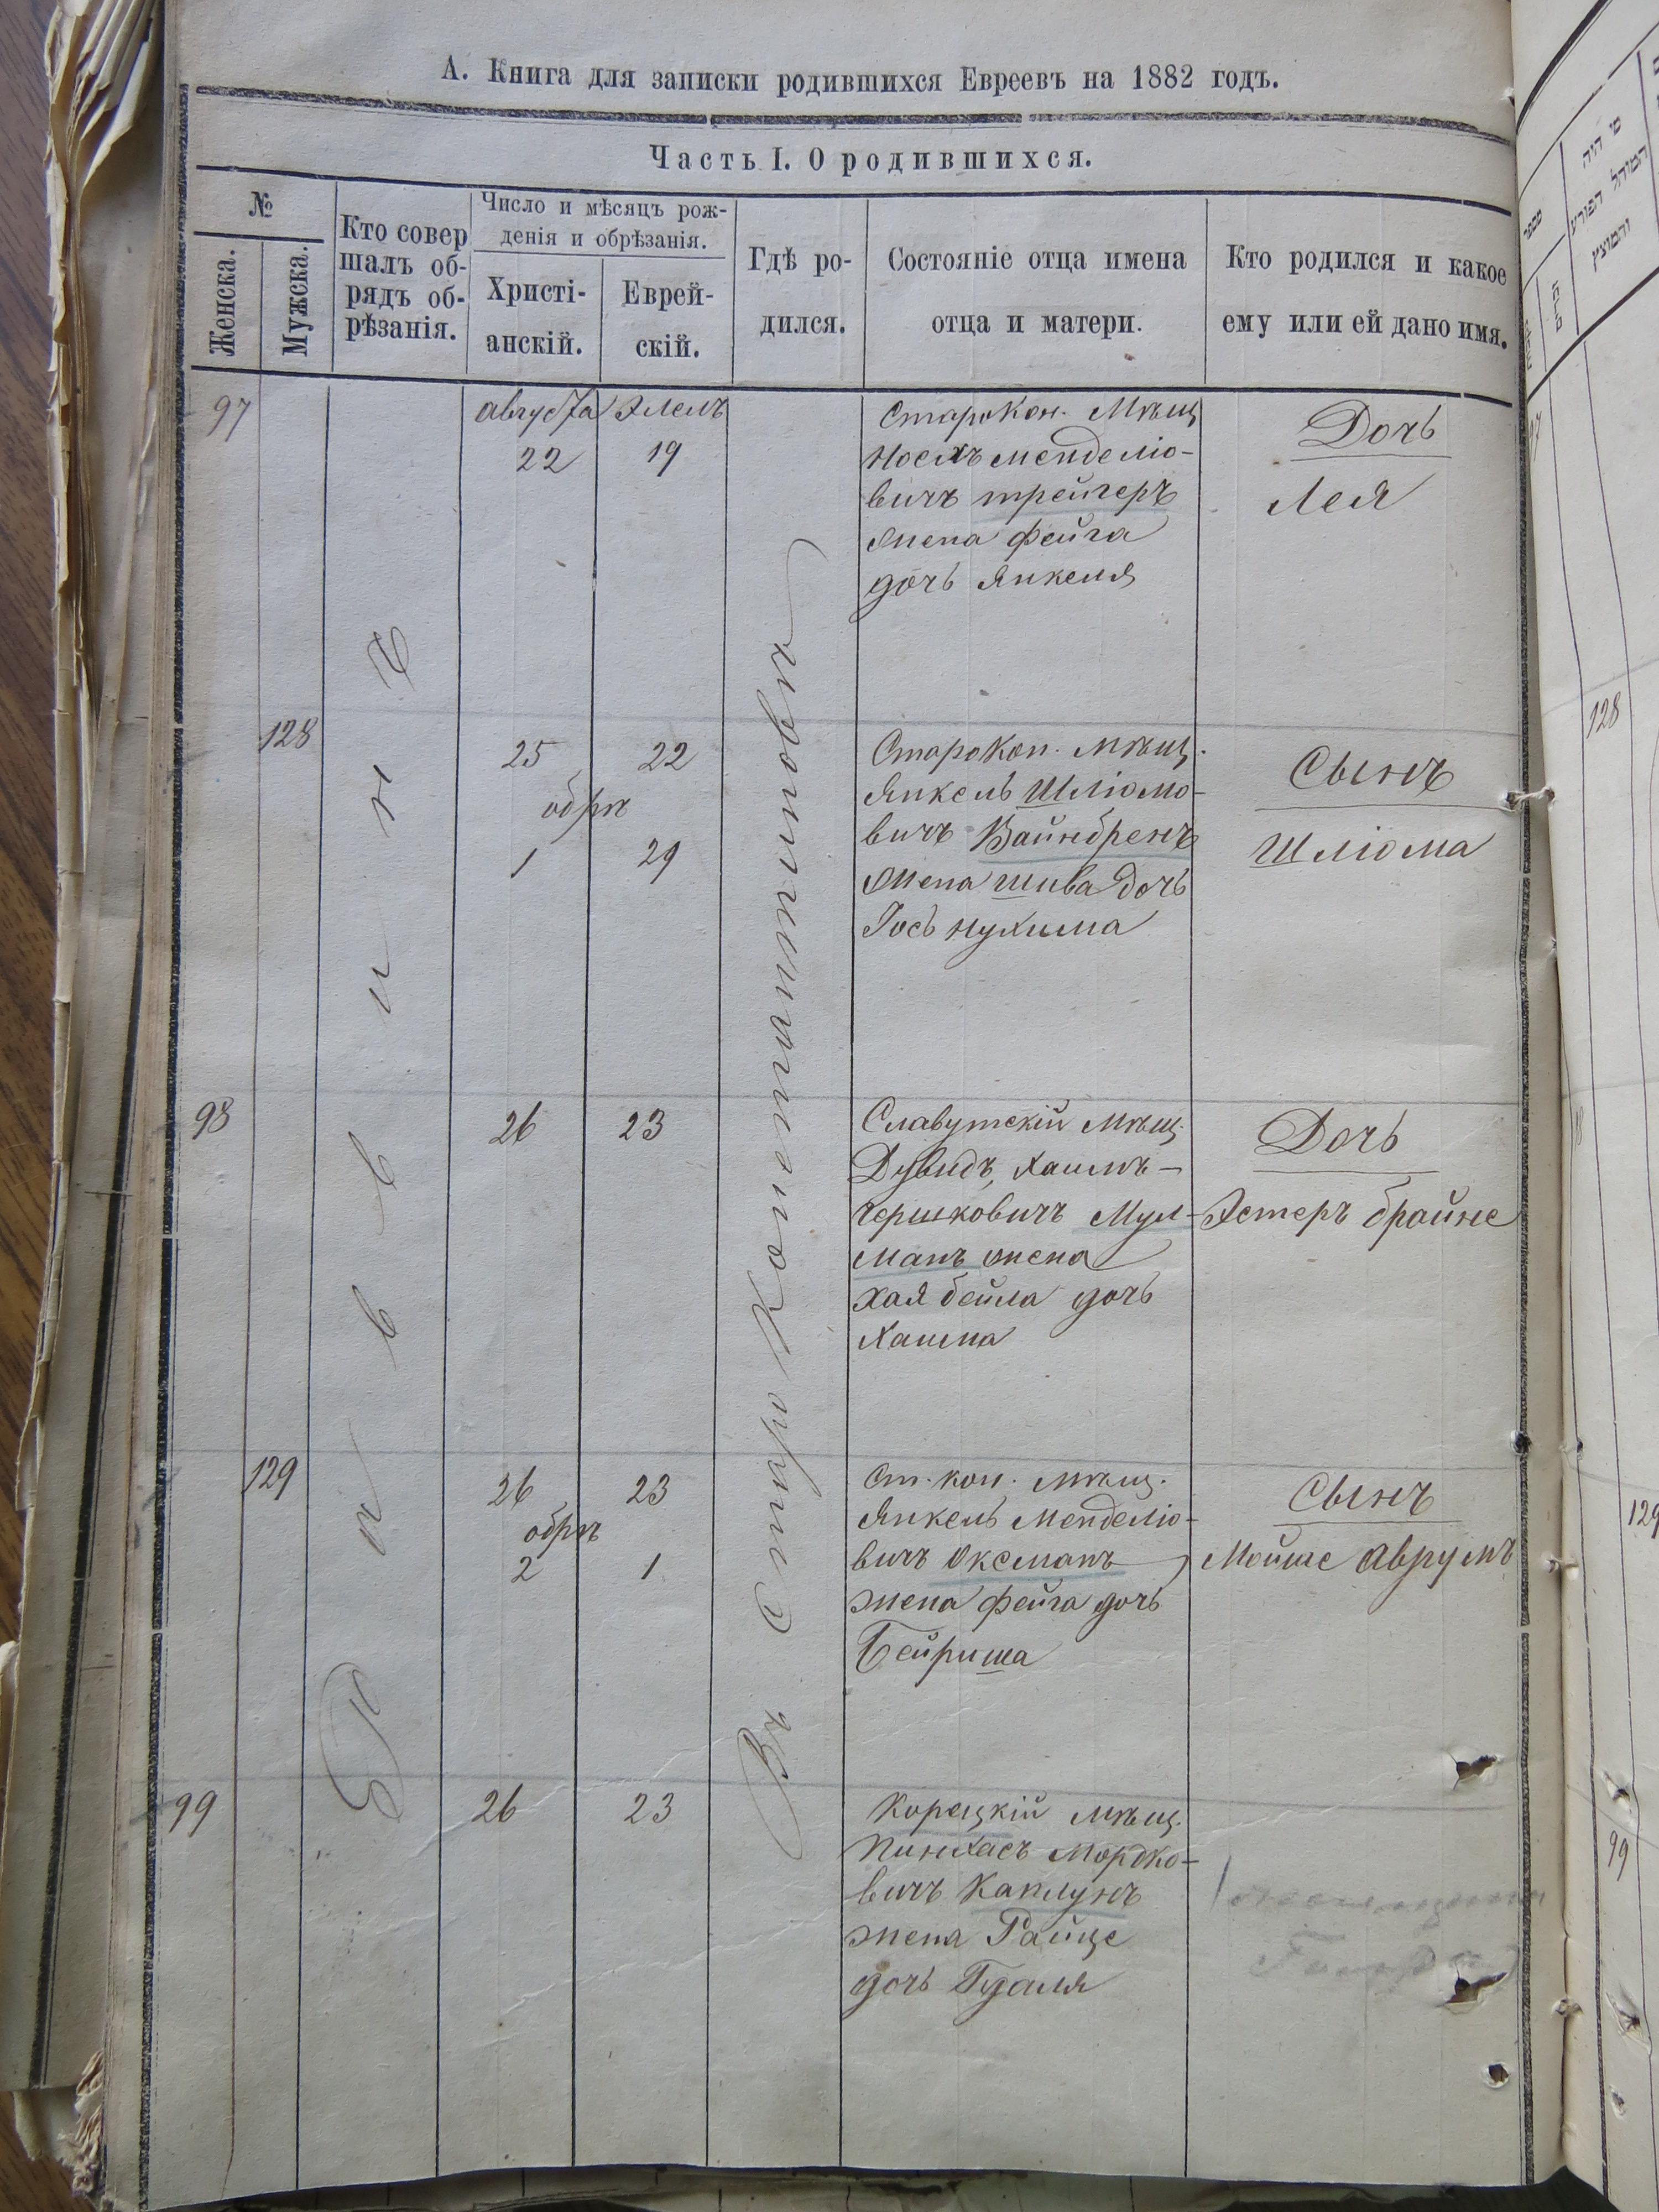 А. Книга для записки родившихся Евреевъ на 1882 годъ.
Часть I. О родившихся.
№
Женска.
Мужска.
Кто совер
шалъ об-
рядъ об-
рѣзанія.
Число и мѣсяцъ рож-
денія и обрѣзанія.
Христі-
анскій.
Еврей-
скій.
Гдѣ ро-
дился.
Состояніе отца имена
отца и матери.
Кто родился и какое
ему или ей дано имя.
Раввинъ
Въ Старо Константиновѣ
97
августа Элелъ
22 19
СтароКон. Мѣщ
Иосъ менделіо-
вичъ трейгеръ
жена фейга
дочь Янкеля
Дочь
Лея
128
25 22
обрѣ
1 29
СтароКон. мѣщ.
Янкель Шліомо-
вичъ Вайнбренъ
жена шива дочь
Іось нухима
Сынъ
Шліома
98
26 23
Славутскій мѣщ.
Дувидъ, Хаимъ-
гершковичъ Мул-
манъ жена
хая бейла дочь
Хаима
Дочь
Эстеръ брайне
129
26 23
обрѣ
2 1
ст. кон. мѣщ.
Янкель Менделіо-
вичъ Оксманъ
жена фейга дочь
Бейриша
Сынъ
Мойше Аврумъ
99
26 23
Корецкій мѣщ.
Пинхасъ Мордко-
вичъ Каплунъ
жена Райце
дочь Гдаля
128
129
99